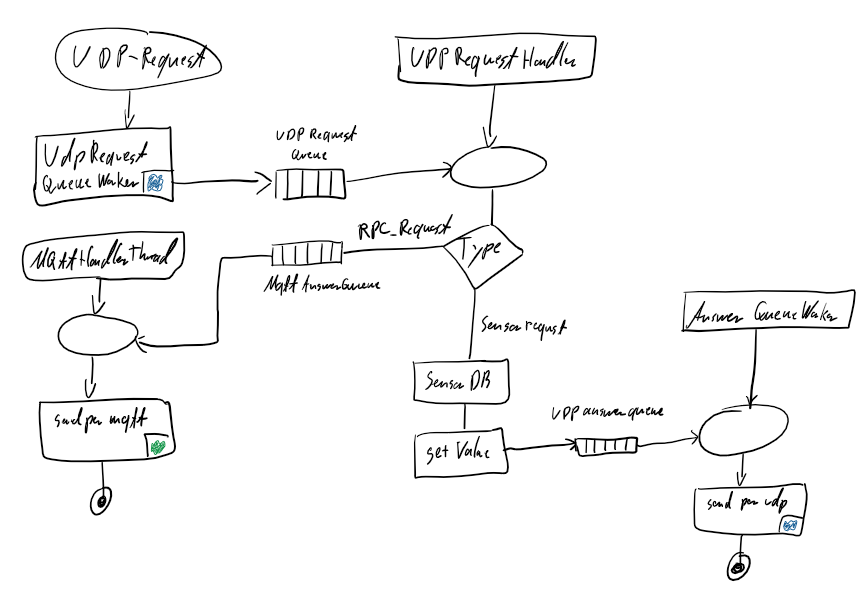 UDP-Request
UDPRequestHandler
UdpRequest
Queue Worker
UDP Request
Queue
RPC_Request
Type
MQttHandlerThread
Mqtt AnswerQueue
Sensorrequst
Answer QueueWorker
Sensor DB
send per mqtt
UDP answerqueue
get Value
send per udp